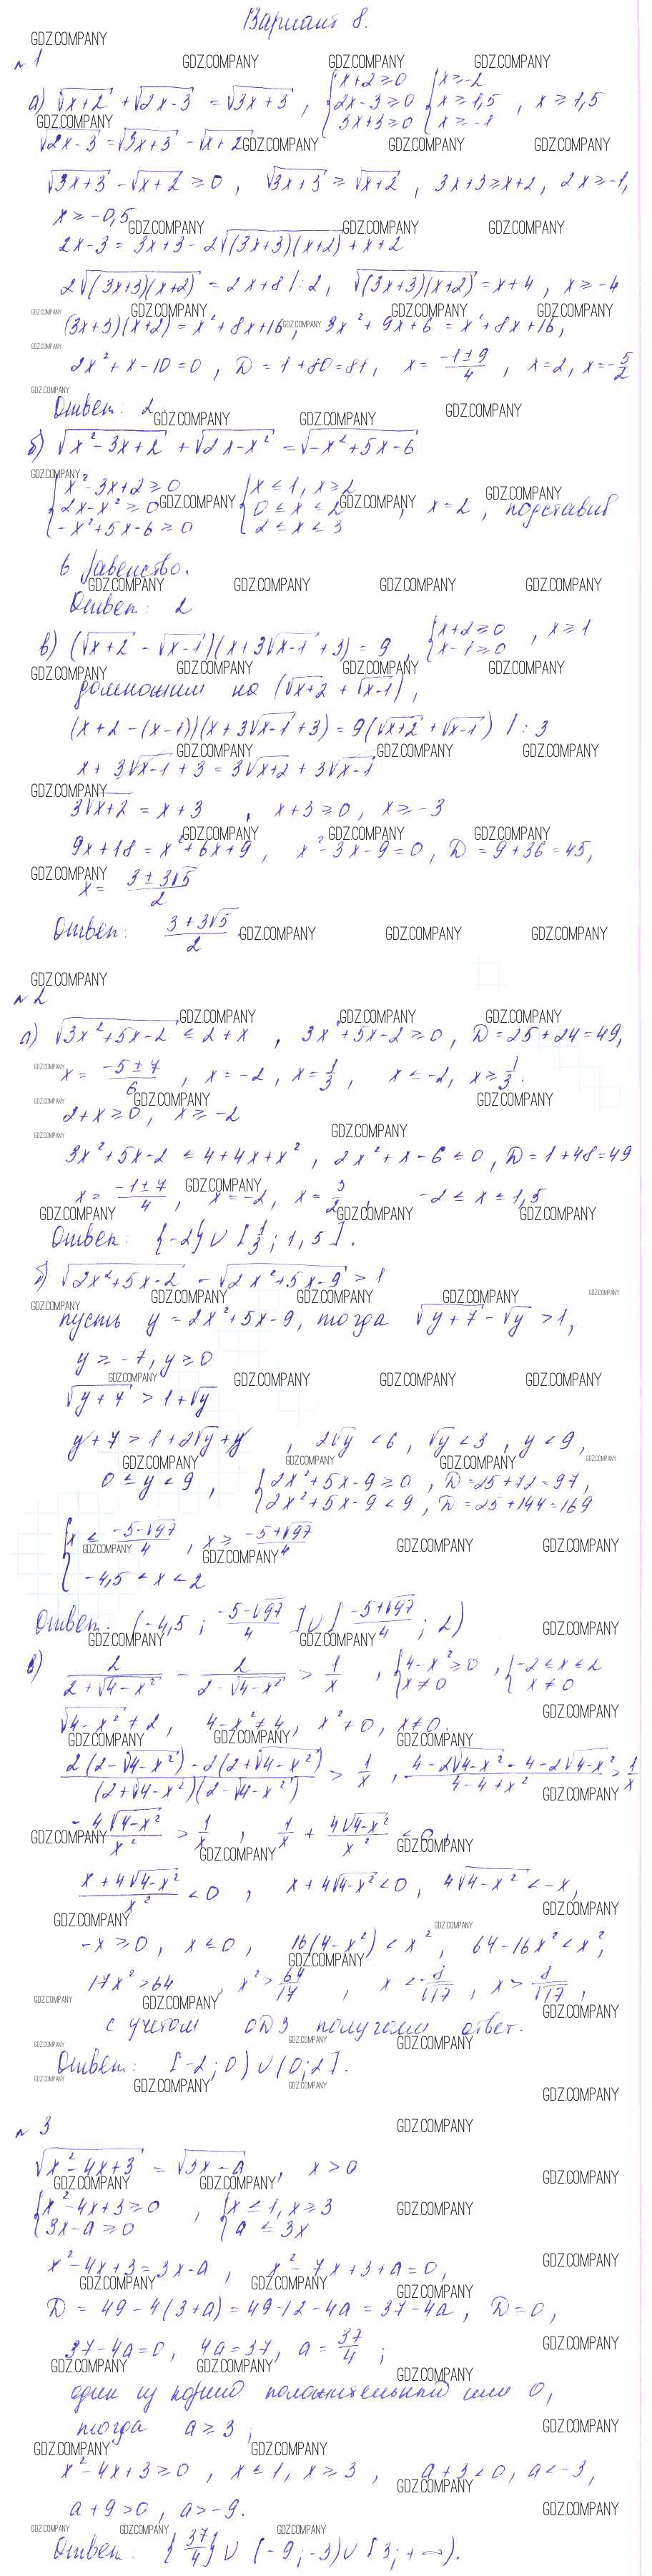 Вариант 8.
№ 1
а) √(x+2) + √(2x-3) = √(3x+3) , { x+2≥0 2x-3≥0 3x+3≥0 { x≥-2 x≥1,5 x≥-1 , x≥1,5
√(2x-3) = √(3x+3) - √(x+2)
√(3x+3) - √(x+2) ≥ 0 , √(3x+3) ≥ √(x+2) , 3x+3≥x+2, 2x≥-1,
x≥-0,5
2x-3 = 3x+3-2√((3x+3)(x+2)) + x+2
2√((3x+3)(x+2)) = 2x+8 /:2, √((3x+3)(x+2)) = x+4 , x≥-4
(3x+3)(x+2) = x²+8x+16, 3x²+9x+6 = x²+8x+16,
2x²+x-10=0 , D=1+80=81, x= (-1±9)/4 , x=2, x=-5/2
Ответ: 2
б) √(x²-3x+2) + √(2x-x²) = √(-x²+5x-6)
{ x²-3x+2≥0 2x-x²≥0 -x²+5x-6≥0 { x≤1, x≥2 0≤x≤2 2≤x≤3 , x=2 , подставив
в равенство.
Ответ: 2
в) (√(x+2) - √(x-1))(x+3√(x-1)+3) = 9 , { x+2≥0 x-1≥0 , x≥1
домножим на (√(x+2) + √(x-1)),
(x+2-(x-1))(x+3√(x-1)+3) = 9(√(x+2) + √(x-1)) /:3
x+3√(x-1)+3 = 3√(x+2) + 3√(x-1)
3√(x+2) = x+3 , x+3≥0, x≥-3
9x+18 = x²+6x+9, x²-3x-9=0, D=9+36=45,
x= (3±3√5)/2
Ответ: (3+3√5)/2
№ 2
а) √(3x²+5x-2) ≤ 2+x , 3x²+5x-2≥0, D=25+24=49,
x= (-5±7)/6 , x=-2, x=1/3 , x≤-2, x≥1/3.
2+x≥0, x≥-2
3x²+5x-2 ≤ 4+4x+x² , 2x²+x-6≤0, D=1+48=49
x= (-1±7)/4 , x=-2, x=3/2 , -2≤x≤1,5
Ответ: {-2}∪[1/3; 1,5].
б) √(2x²+5x-2) - √(2x²+5x-9) > 1
пусть y=2x²+5x-9, тогда √(y+7) - √y > 1,
y≥-7, y≥0
√(y+7) > 1+√y
y+7 > 1+2√y+y , 2√y<6, √y<3, y<9,
0≤y<9 , { 2x²+5x-9≥0 , D=25+72=97, 2x²+5x-9<9, D=25+144=169
{ x≤ (-5-√97)/4 , x≥ (-5+√97)/4 -4,5<x<2
Ответ: (-4,5; (-5-√97)/4]∪[(-5+√97)/4; 2)
в) 2/(2+√(4-x²)) - 2/(2-√(4-x²)) > 1/x , { 4-x²≥0 x≠0 , { -2≤x≤2 x≠0
√(4-x²)≠2, 4-x²≠4, x²≠0, x≠0.
(2(2-√(4-x²))-2(2+√(4-x²)))/((2+√(4-x²))(2-√(4-x²))) > 1/x , (4-2√(4-x²)-4-2√(4-x²))/(4-4+x²) > 1/x
-4√(4-x²)/x² > 1/x , 1/x + 4√(4-x²)/x² < 0,
(x+4√(4-x²))/x² < 0 , x+4√(4-x²)<0, 4√(4-x²)<-x,
-x≥0, x≤0, 16(4-x²)<x², 64-16x²<x²,
17x²>64 , x²>64/17 , x<-8/√17 , x>8/√17 ,
с учетом ОДЗ получаем ответ.
Ответ: [-2;0)∪(0;2].
№ 3
√(x²-4x+3) = √(3x-a) , x>0
{ x²-4x+3≥0 3x-a≥0 , { x≤1, x≥3 a≤3x
x²-4x+3=3x-a , x²-7x+3+a=0,
D = 49-4(3+a) = 49-12-4a = 37-4a, D=0,
37-4a=0, 4a=37, a=37/4 ;
один из корней положительный или 0,
тогда a≥3 ;
x²-4x+3≥0 , x≤1, x≥3 , a+3<0, a<-3,
a+9>0, a>-9.
Ответ: {37/4}∪(-9;-3)∪[3;+∞).
GDZ.COMPANY